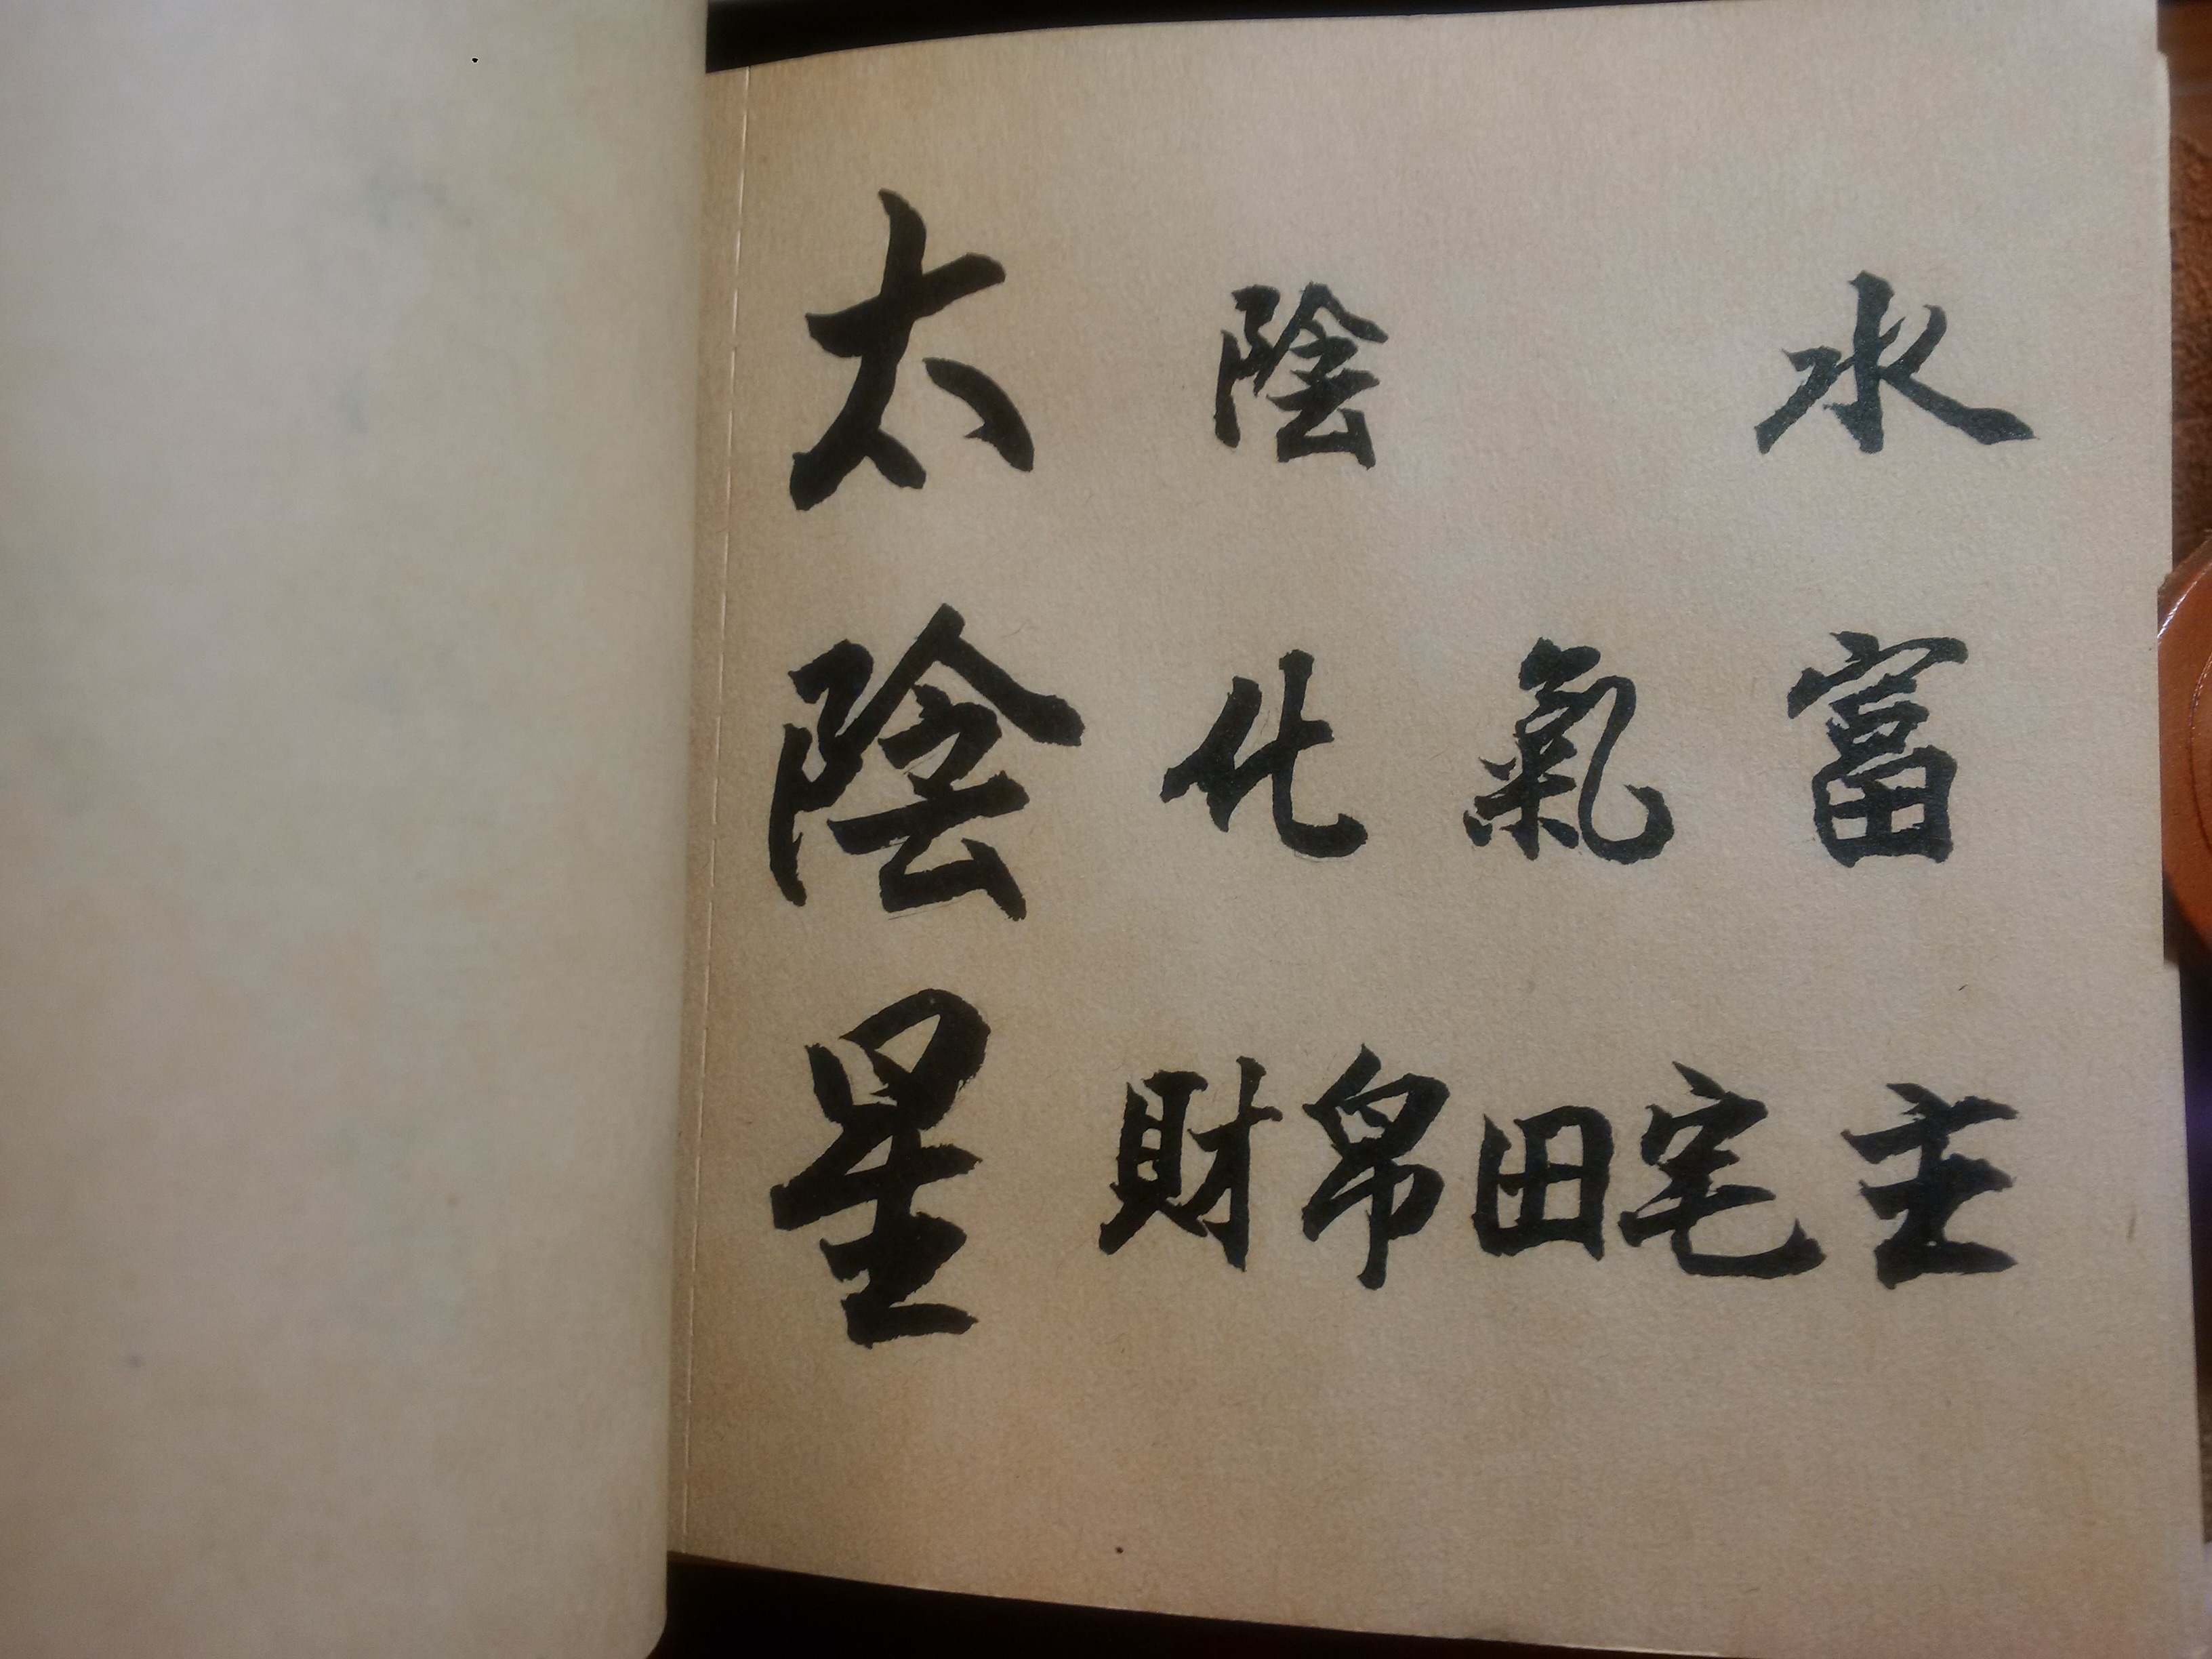 太陰星
陰 水
化氣富
財帛田宅主